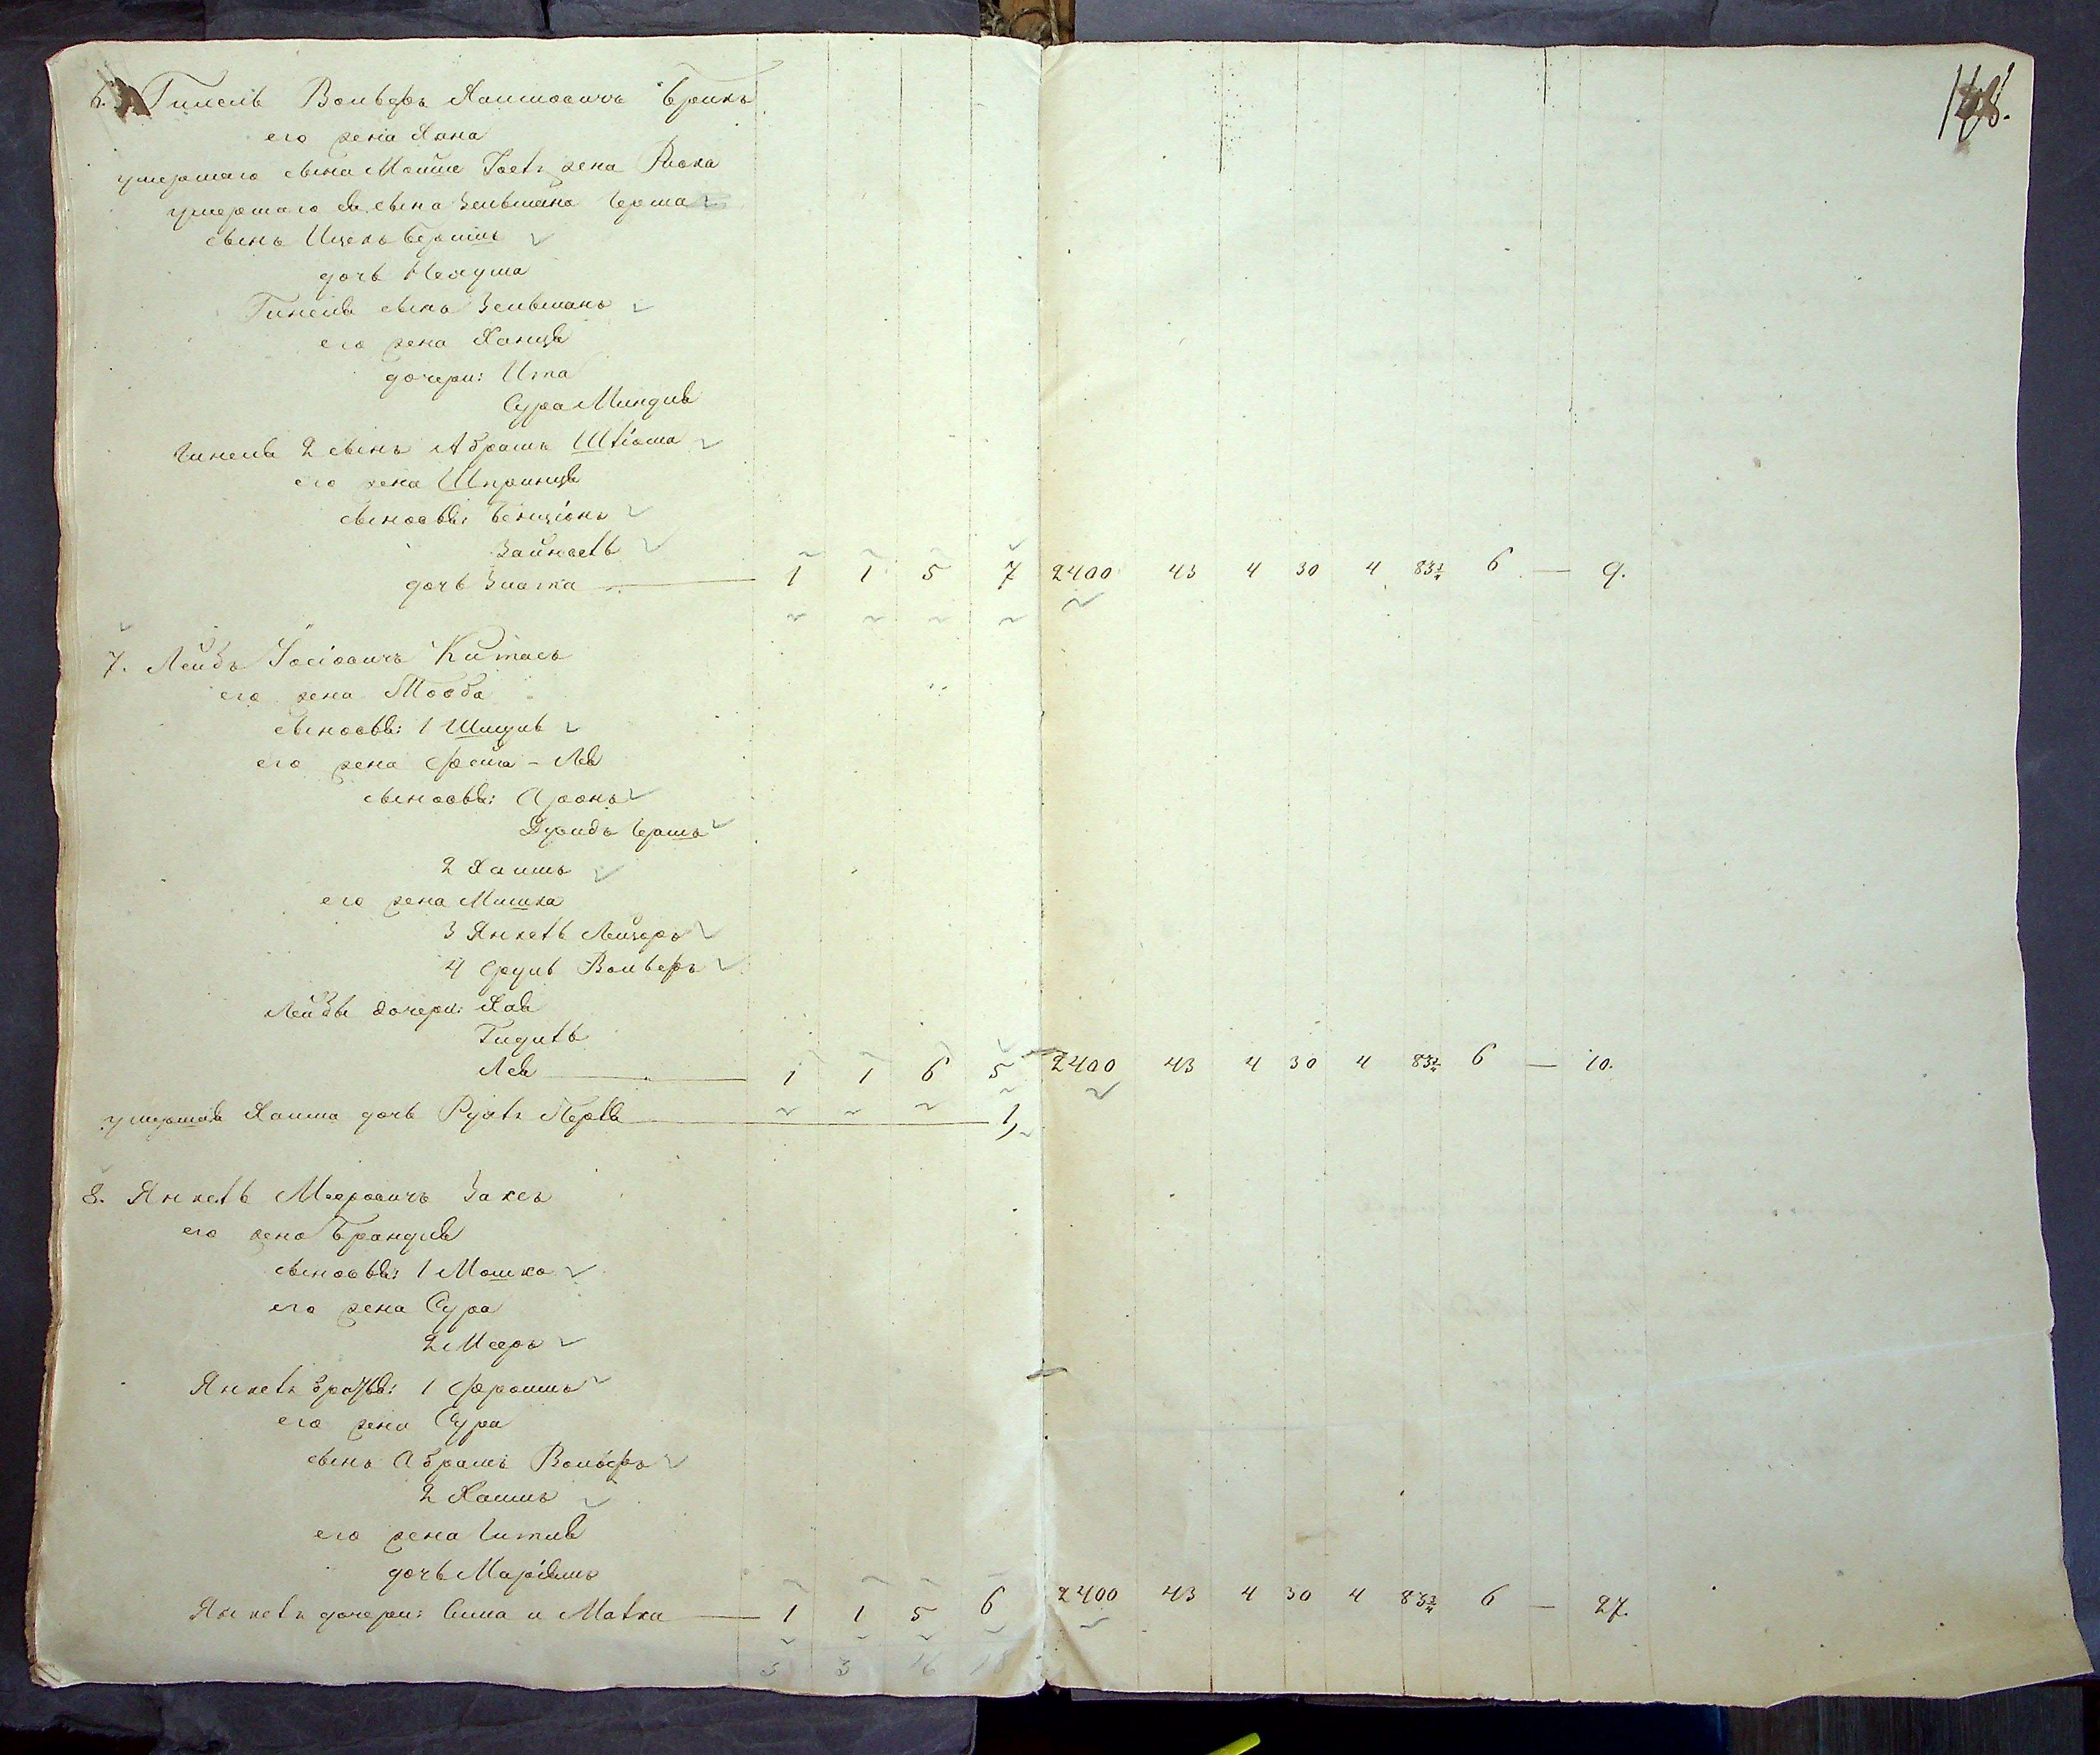 6. Гинель Вольфъ Хаимовичъ Брикъ
его жена Хана
умершаго сына Мойше Іоеля жена Риока
умершаго сына Зельмана Герша
сынъ Ицекъ Бершъ
дочь Нехума
Гинеля сынъ Зельманъ
его жена Ханця
дочери: Ита
Сура Миндля
Гинеля 2 сынъ Абрамъ Шліома
его жена Шпринця
сыновья: Бенціонъ
Зайнвель
дочь Злата — 1 1 5 7 2400 43 4 30 4 83¾ 6 — 9.
7. Лейбъ Іосіовичъ Китасъ
его жена Тооба
сыновья: 1 Шмуль
его жена Фейга - Лея
сыновья: Аронъ
Давидъ Гершъ
2 Хаимъ
его жена Мишка
3 Янкель Лейзеръ
4 Сруль Вольфъ
Лейбы дочери: Хая
Гидуля
Лея — 1 1 6 5 2400 43 4 30 4 83¾ 6 — 10.
умершаго Хаима дочь Рухля Перля — 1
8. Янкель Мееровичъ Заксъ
его жена Брандля
сыновья: 1 Мошко
его жена Сура
2 Мееръ
Янкеля братья: 1 Фроимъ
его жена Сура
сынъ Абрамъ Вольфъ
2 Хаимъ
его жена Гитля
дочь Маріямъ
Янкеля дочери: Сима и Малка — 1 1 5 6 2400 43 4 30 4 83¾ 6 — 27.
3 3 16 18